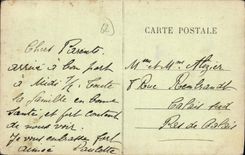 CARTE POSTALE
Chers Parents
arrivé à bon port
à Midi ½. Toute
la famille en bonne
santé, et fort content
de nous voir.
Je vous embrasse fort
Paulette
Mme et Mr
8 Rue Rembrandt
Calais sud
Pas de Calais